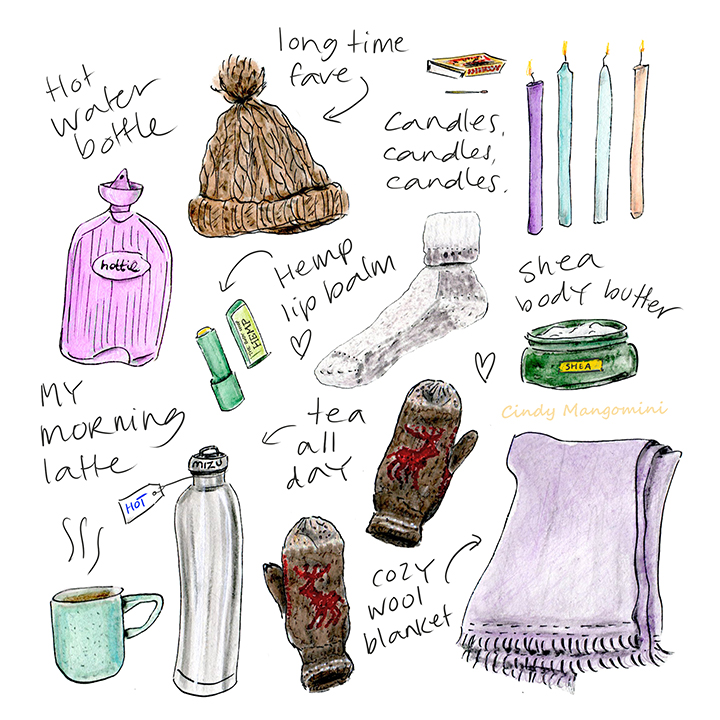 Hot
water
bottle
hottie
long time
fave
candles,
candles,
candles.
Hemp
lip balm
HEMP
shea
body butter
SHEA
Cindy Mangomini
MY
morning
latte
tea
all
day
MIZU
HOT
cozy
wool
blanket